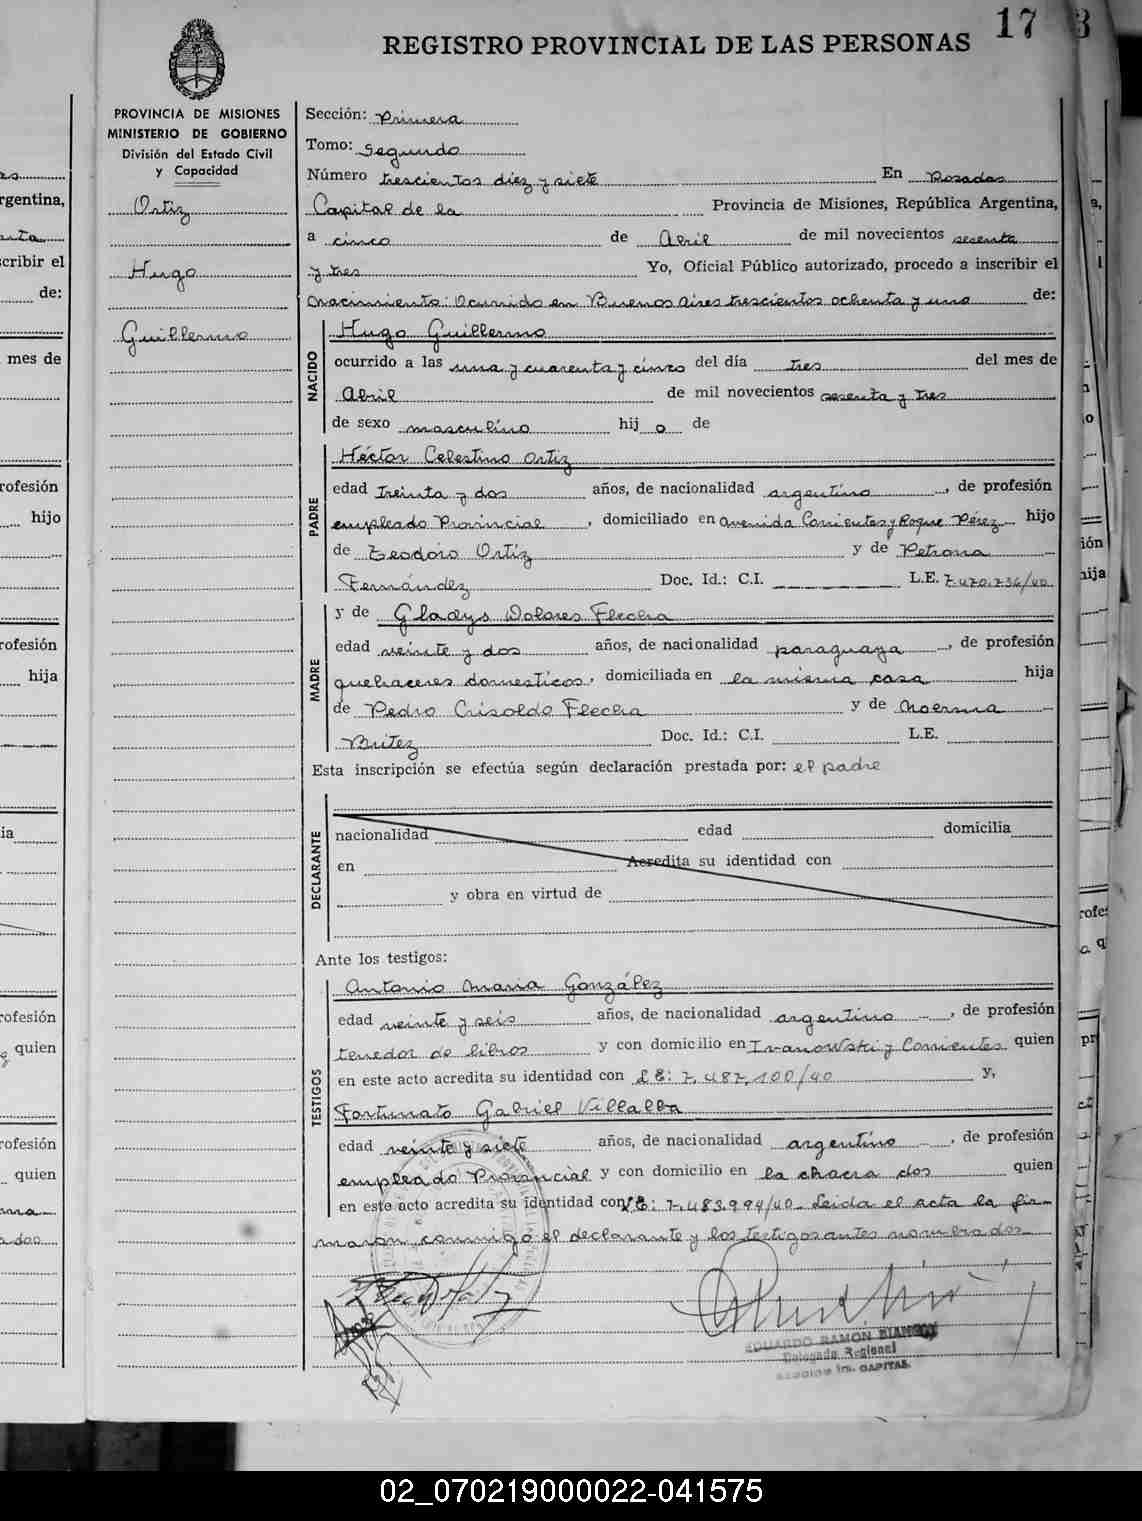 17
3
REGISTRO PROVINCIAL DE LAS PERSONAS
PROVINCIA DE MISIONES
MINISTERIO DE GOBIERNO
División del Estado Civil
y Capacidad
Ortiz
Hugo
Guillermo
Sección: Primera
Tomo: Segundo
Número trescientos diez y siete En Posadas
Capital de la Provincia de Misiones, República Argentina,
a cinco de Abril de mil novecientos sesenta
y tres Yo, Oficial Público autorizado, procedo a inscribir el
nacimiento: Ocurrido en Buenos Aires trescientos ochenta y uno de:
NACIDO
Hugo Guillermo
ocurrido a las una y cuarenta y cinco del día tres del mes de
Abril de mil novecientos sesenta y tres
de sexo masculino hij o de
PADRE
Héctor Celestino Ortiz
edad treinta y dos años, de nacionalidad argentino, de profesión
empleado Provincial, domiciliado en avenida Corrientes y Roque Pérez hijo
de Teodoro Ortiz y de Petrona
Fernández Doc. Id.: C.I. L.E. 7.470.736/40
MADRE
y de Gladys Dolores Flecha
edad veinte y dos años, de nacionalidad paraguaya, de profesión
quehaceres domesticos, domiciliada en la misma casa hija
de Pedro Crisoldo Flecha y de Noerma
Britez Doc. Id.: C.I. L.E.
Esta inscripción se efectúa según declaración prestada por: el padre
DECLARANTE
nacionalidad edad domicilia
en Acredita su identidad con
y obra en virtud de
Ante los testigos:
TESTIGOS
Antonio Maria González
edad veinte y seis años, de nacionalidad argentino, de profesión
tenedor de libros y con domicilio en Ivanowski y Corrientes quien
en este acto acredita su identidad con L E: 7.487.100/40 y,
Fortunato Gabriel Villalba
edad veinte y siete años, de nacionalidad argentino, de profesión
empleado Provincial y con domicilio en la chacra dos quien
en este acto acredita su identidad con L E: 7.483.994/40. Leida el acta la fir-
maron conmigo el declarante y los testigos antes nombrados
EDUARDO RAMON BIANCO
Delegado Regional
CAPITAL
02_070219000022-041575